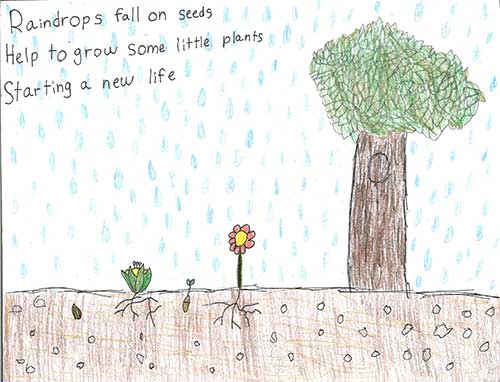 Raindrops fall on seeds
Help to grow some little plants
Starting a new life